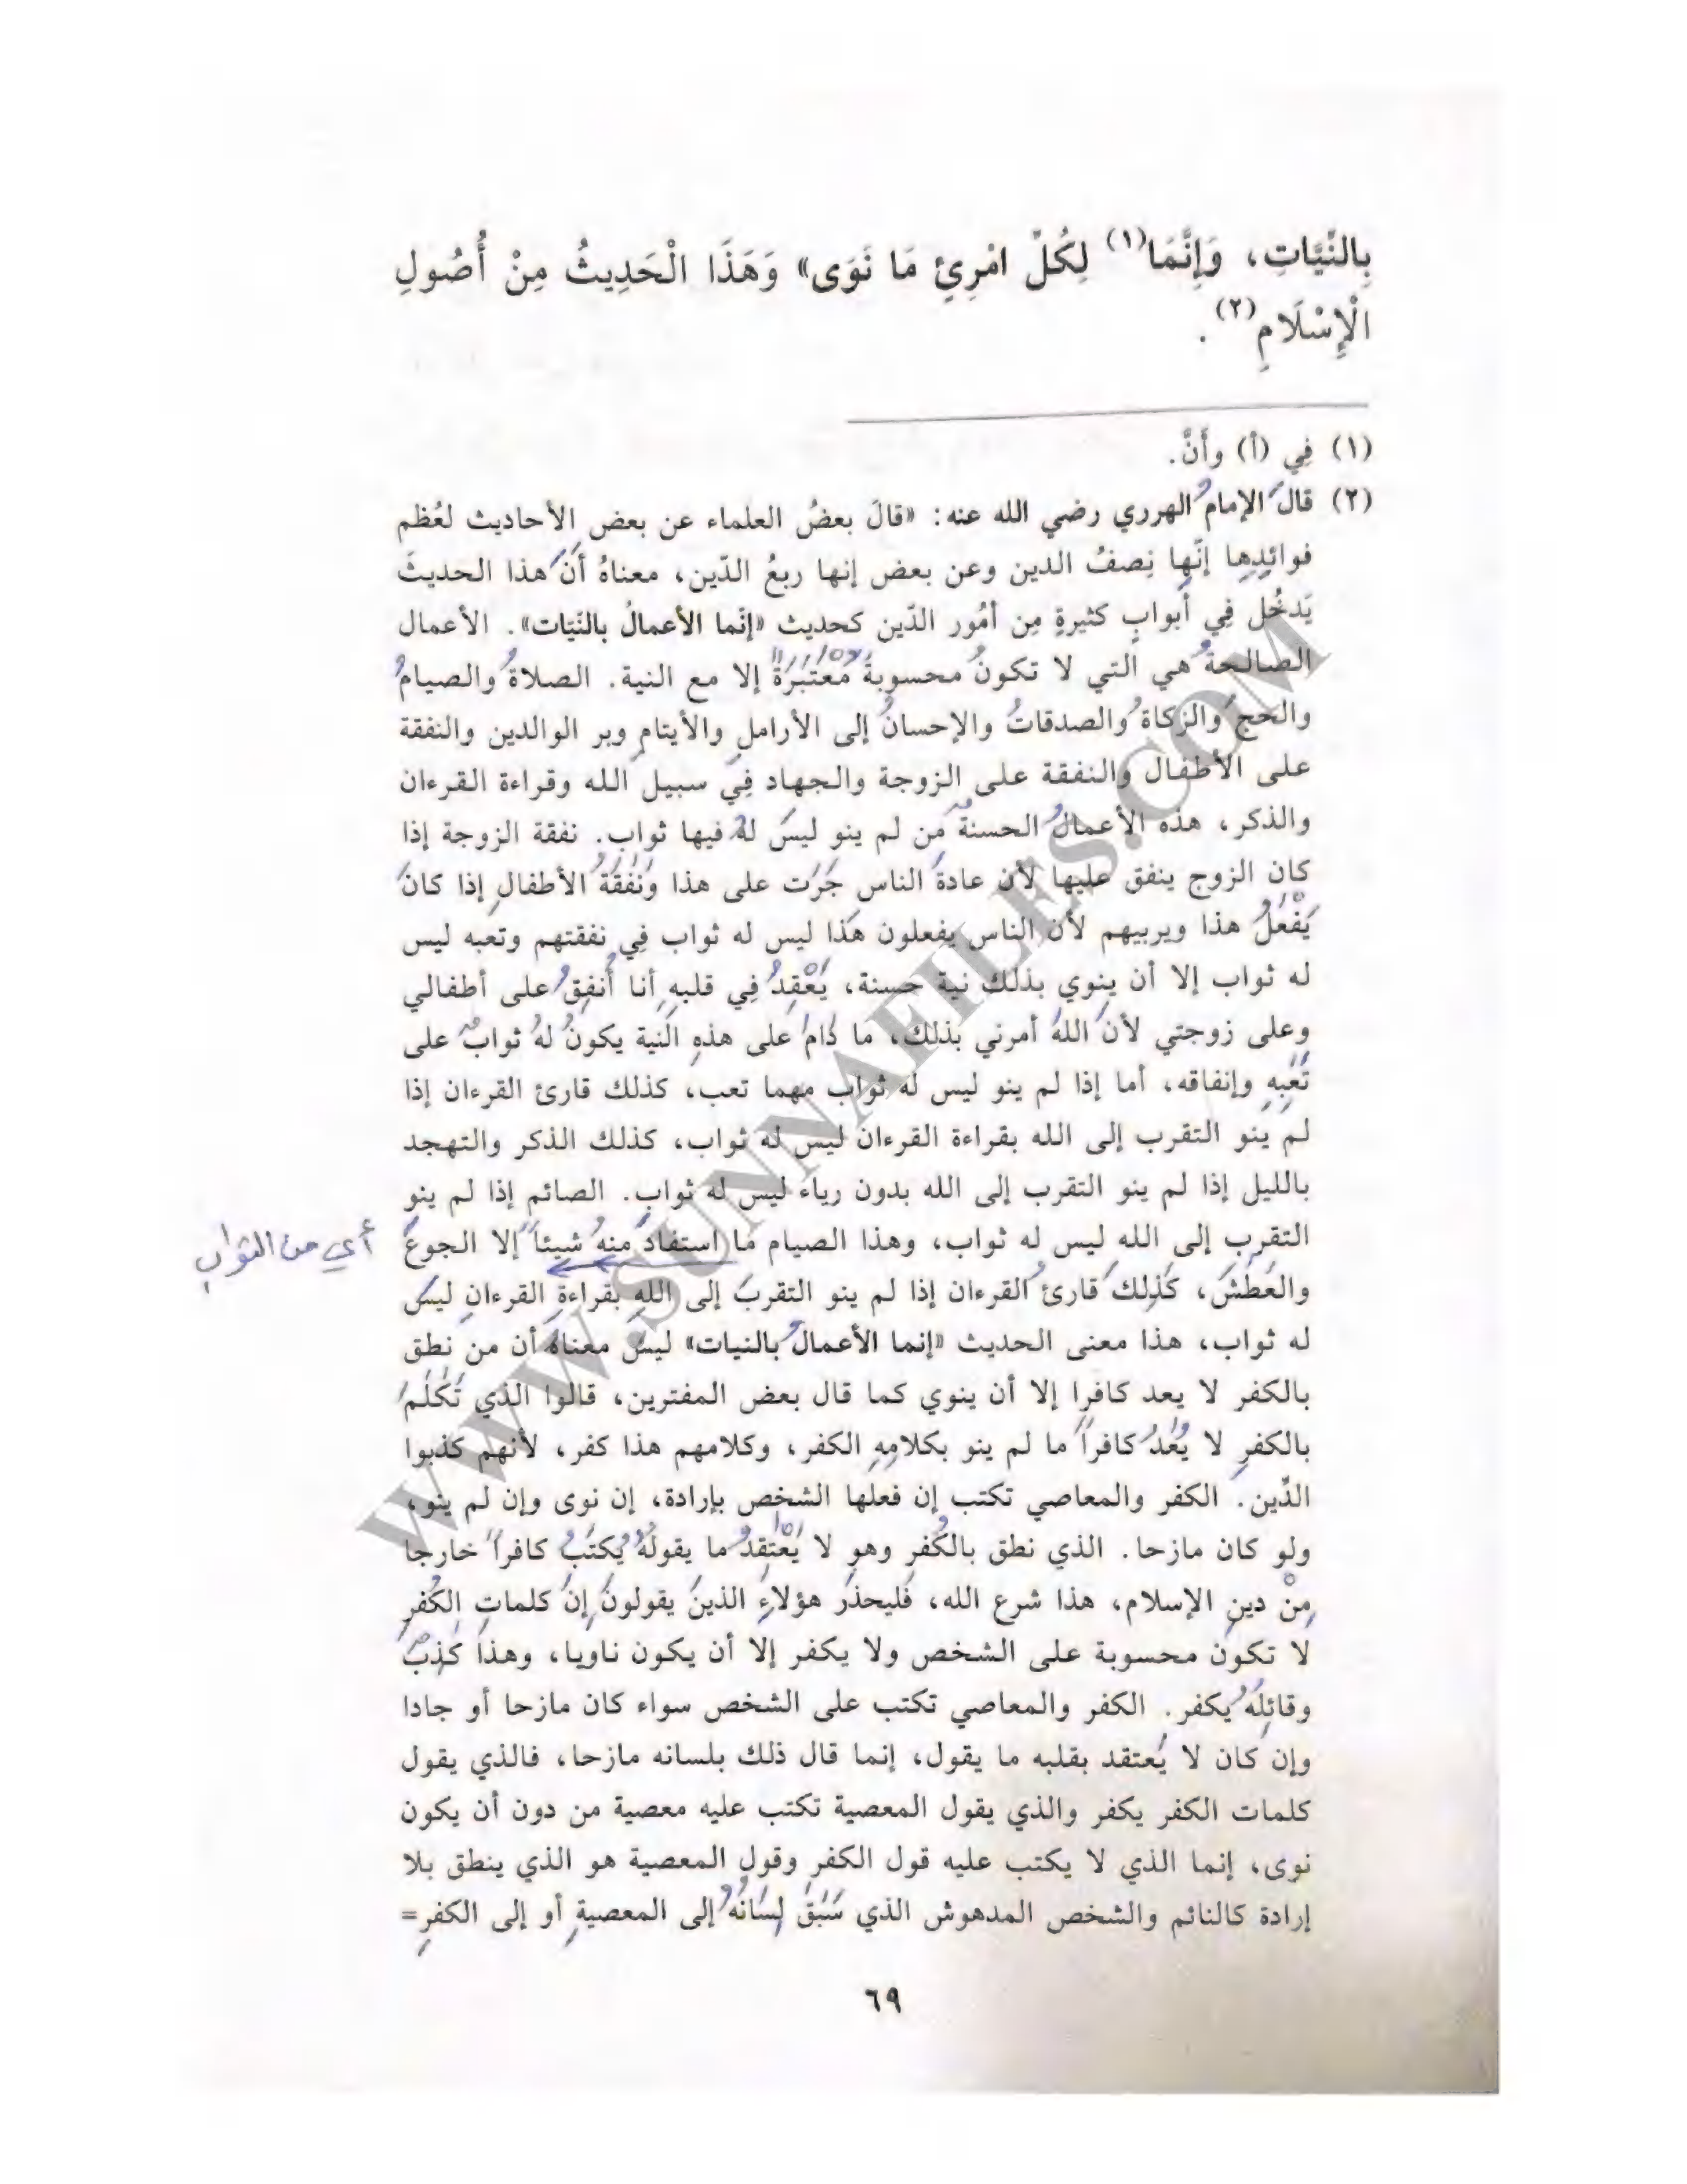 بِالنِّيَّاتِ، وَإِنَّمَا(١) لِكُلِّ امْرِئٍ مَا نَوَى» وَهَذَا الْحَدِيثُ مِنْ أُصُولِ
الْإِسْلَامِ(٢).
(١) فِي (أ) وأَنَّ.
(٢) قالَ الإمامُ الهرري رضي الله عنه: «قالَ بعضُ العلماء عن بعض الأحاديث لعُظم
فوائدِها إنّها نِصفُ الدين وعن بعض إنها ربعُ الدّين، معناهُ أنَّ هذا الحديثَ
يَدخُل فِي أبوابٍ كثيرةٍ مِن أمُور الدّين كحديث «إنّما الأعمالُ بالنّيّات». الأعمال
الصالحةُ هي التي لا تكونُ محسوبةً مُعْتَبَرَةً إلا مع النية. الصلاةُ والصيامُ
والحج والزكاةُ والصدقاتُ والإحسانُ إلى الأراملِ والأيتامِ وبر الوالدين والنفقة
على الأطفال والنفقة على الزوجة والجهاد فِي سبيل الله وقراءة القرءان
والذكر، هذه الأعمالُ الحسنةُ من لم ينو ليسَ لهُ فيها ثواب. نفقة الزوجة إذا
كان الزوج ينفق عليها لأن عادةَ الناس جَرَت على هذا ونَفَقَةُ الأطفالِ إذا كانَ
يَفْعَلُ هذا ويربيهم لأن الناس يفعلون هَذا ليس له ثواب فِي نفقتهم وتعبه ليس
له ثواب إلا أن ينوي بذلك نية حسنة، يَعْقِدُ فِي قلبهِ أنا أُنفِقُ على أطفالي
وعلى زوجتي لأنَ اللهَ أمرني بذلك، ما دَامَ على هذهِ النية يكونُ لهُ ثوابٌ على
تَعَبِهِ وإنفاقه، أما إذا لم ينو ليس له ثواب مهما تعب، كذلك قارئ القرءان إذا
لم ينو التقرب إلى الله بقراءة القرءان ليس له ثواب، كذلك الذكر والتهجد
بالليل إذا لم ينو التقرب إلى الله بدون رياء ليس له ثواب. الصائم إذا لم ينو
التقرب إلى الله ليس له ثواب، وهذا الصيام ما استفادَ منهُ شيئاً إلا الجوعَ
أي من الثواب
والعَطَشَ، كَذلِكَ قارئُ القرءان إذا لم ينو التقربَ إلى اللهِ بقراءةِ القرءانِ ليسَ
له ثواب، هذا معنى الحديث «إنما الأعمالُ بالنيات» ليسَ معناهُ أن من نطق
بالكفر لا يعد كافرا إلا أن ينوي كما قال بعض المفترين، قالوا الذي تَكَلَّمَ
بالكفرِ لا يُعَدُّ كافراً ما لم ينو بكلامِهِ الكفر، وكلامهم هذا كفر، لأنهم كذبوا
الدِّين. الكفر والمعاصي تكتب إن فعلها الشخص بإرادة، إن نوى وإن لم ينو،
ولو كان مازحا. الذي نطق بالكُفرِ وهو لا يَعْتَقِدُ ما يقولُهُ يُكتَبُ كافراً خارجا
مِنْ دينِ الإسلام، هذا شرع الله، فَليحذَر هؤلاءِ الذينَ يقولونَ إنَّ كلماتِ الكُفرِ
لا تكون محسوبة على الشخص ولا يكفر إلا أن يكون ناويا، وهذا كَذِبٌ
وقائِلُهُ يكفر. الكفر والمعاصي تكتب على الشخص سواء كان مازحا أو جادا
وإن كان لا يَعتقد بقلبه ما يقول، إنما قال ذلك بلسانه مازحا، فالذي يقول
كلمات الكفر يكفر والذي يقول المعصية تكتب عليه معصية من دون أن يكون
نوى، إنما الذي لا يكتب عليه قول الكفرِ وقول المعصية هو الذي ينطق بلا
إرادة كالنائم والشخص المدهوش الذي سَبَقَ لِسَانُهُ إلى المعصيةِ أو إلى الكفرِ=
٦٩
WWW.SUNNAFILES.COM